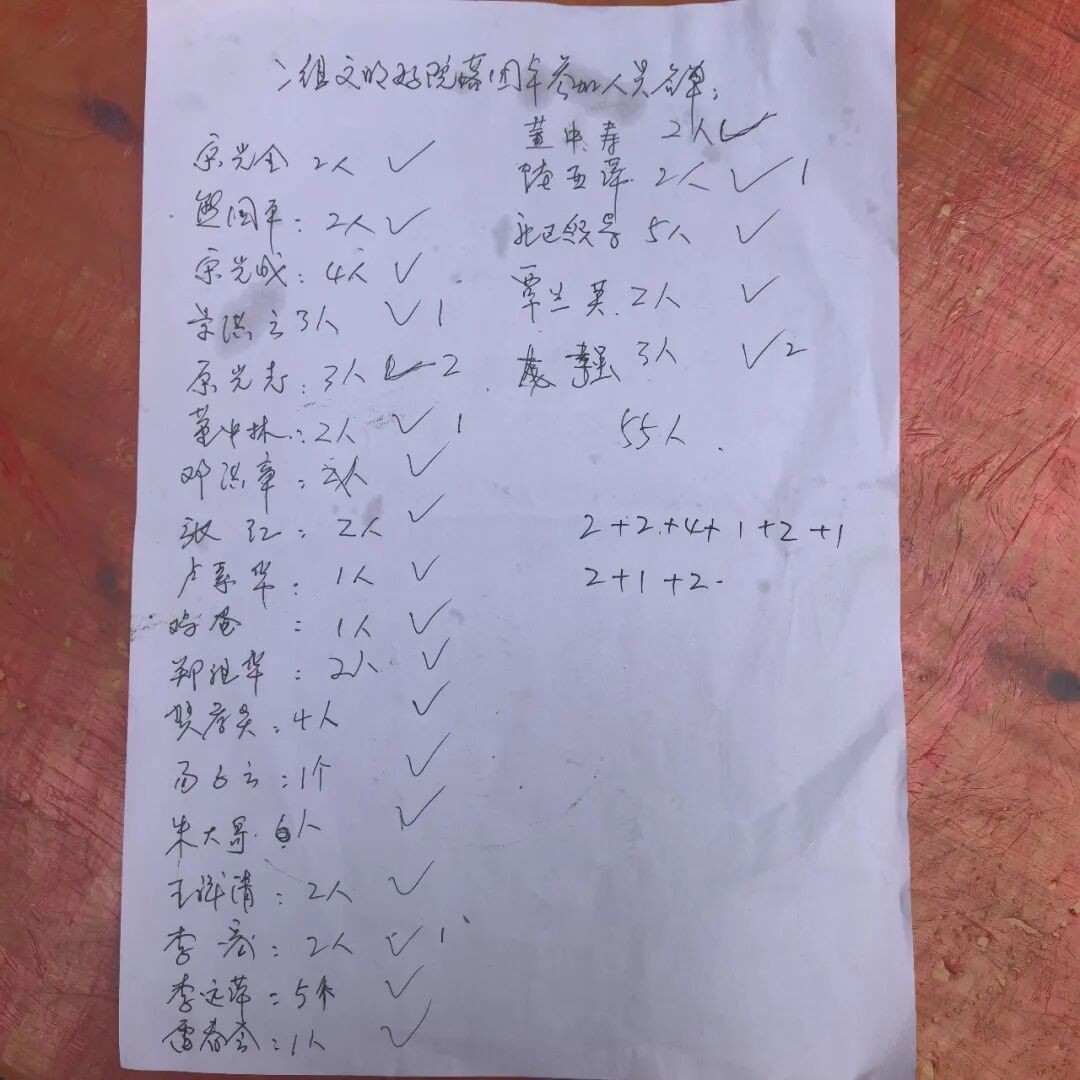 组文明好院落团年参加人员名单：
宗光全 2人 ✓
熊国平：2人 ✓
宗光成：4人 ✓
洪云 3人 ✓ 1
原光志：3人 ✓ 2
董中林：2人 ✓ 1
邓洪章：人 ✓
张红：2人 ✓
卢素华：1人 ✓
：1人 ✓
郑祖华：2人 ✓
贺 ：4人 ✓
云：1个 ✓
朱大哥 6人 ✓
王 清：2人 ✓
李 ：2人 ✓ 1
李文萍：5个 ✓
雷春会：1人 ✓
董中寿 2人 ✓
亚萍 2人 ✓ 1
社区领导 5人 ✓
覃兰英 2人 ✓
强 3人 ✓ 2
55人
2+2+4+1+2+1
2+1+2